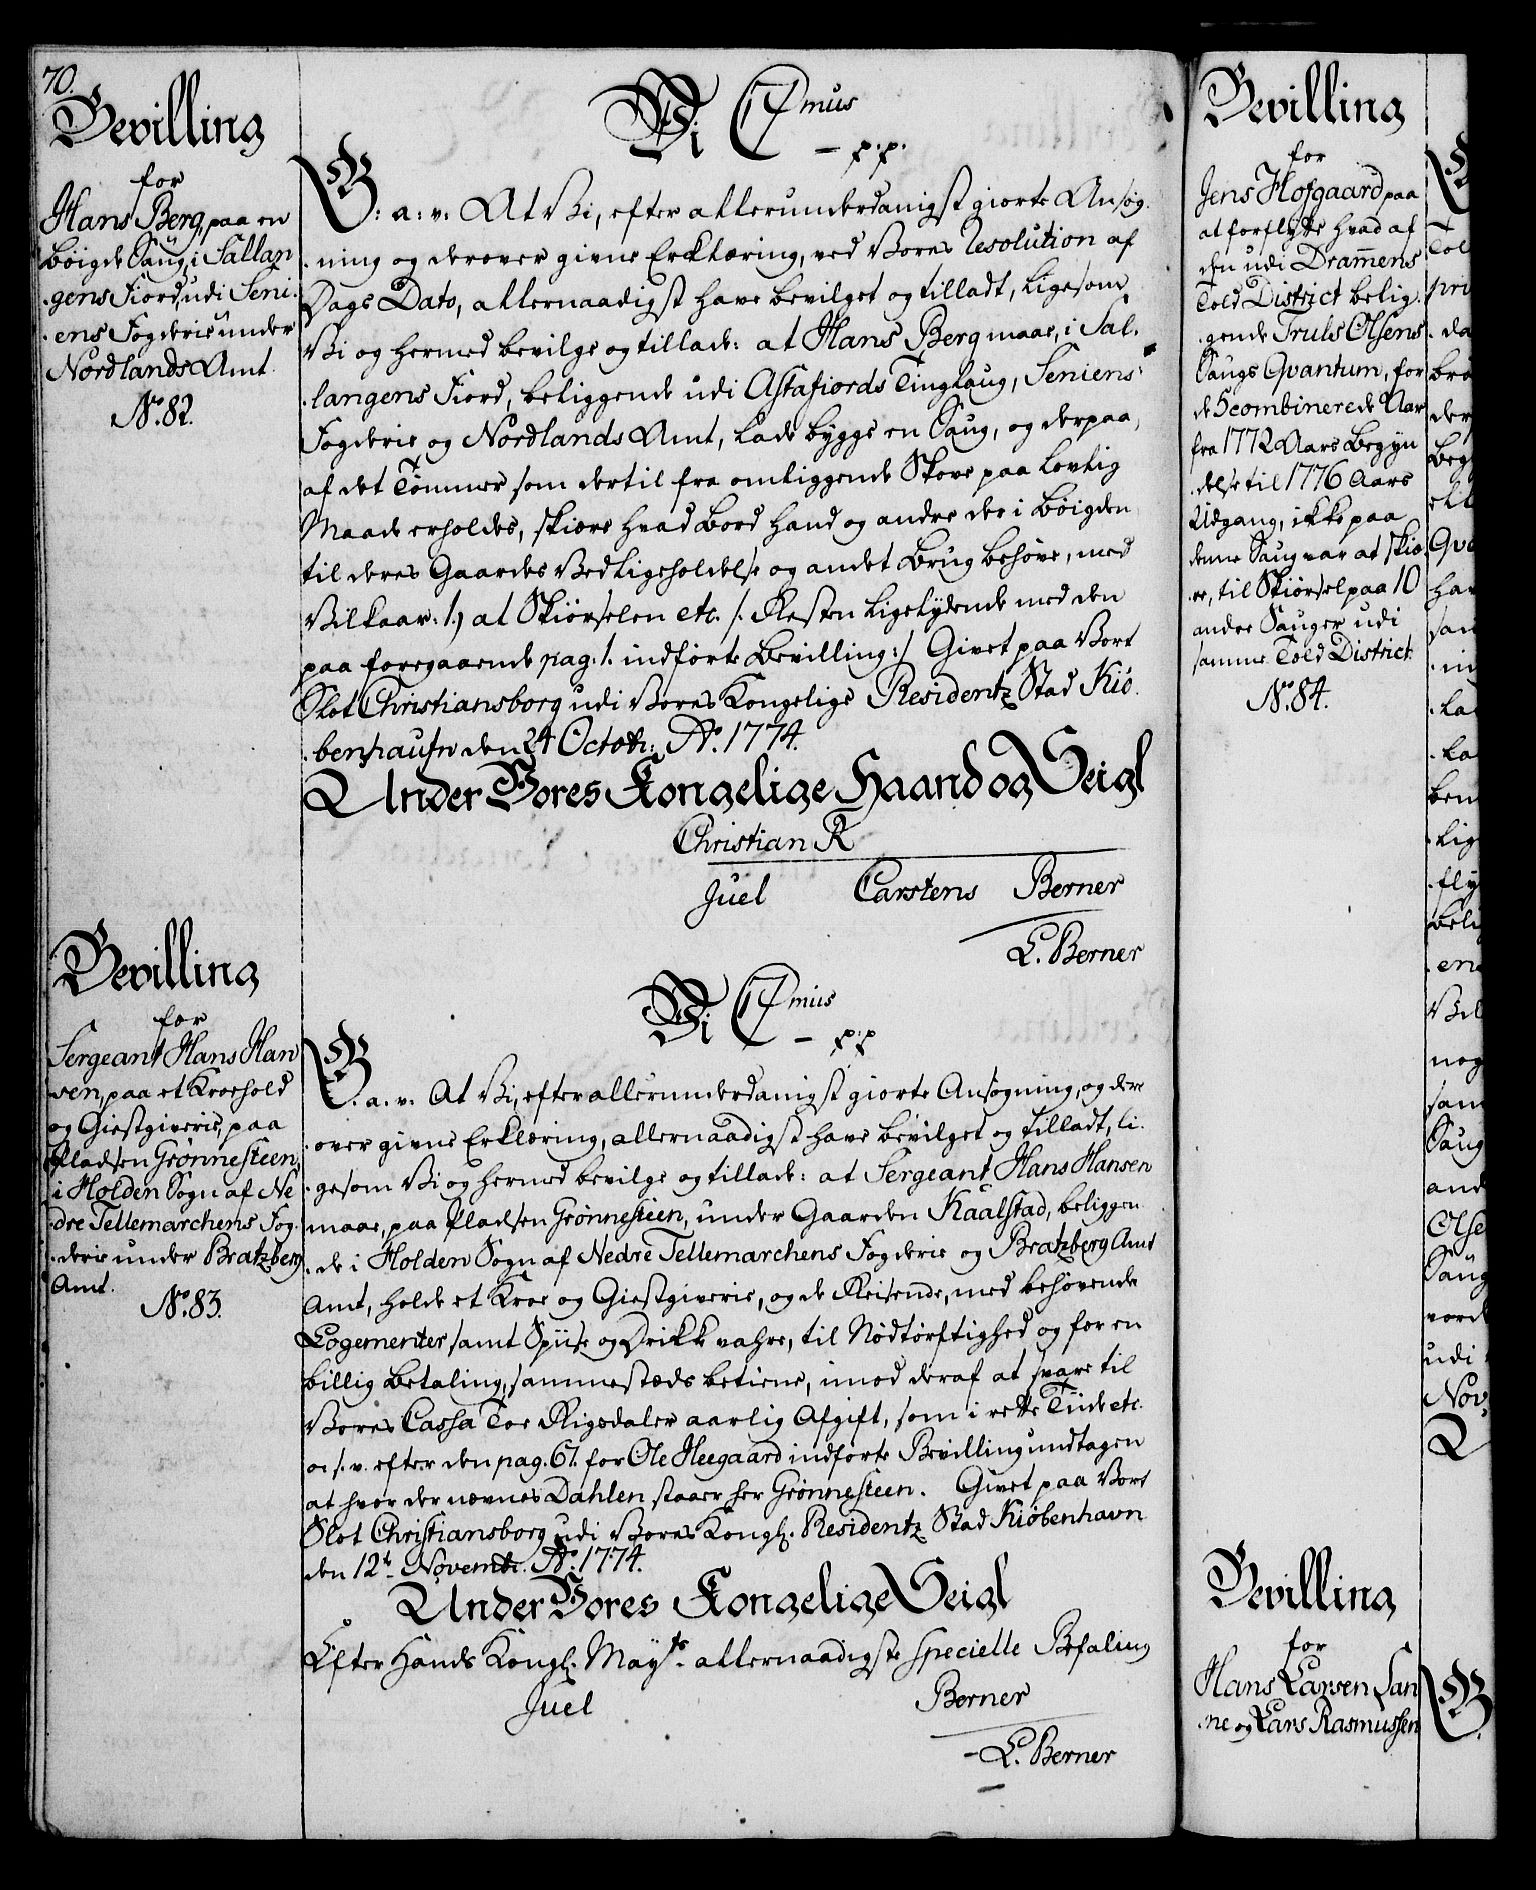 70.
Bevilling
for
Hans Berg, paa en
bøigde Saug, i Sallan
gens Fiord, udi Seni-
ens Fogderie under
Nordlands Amt.
No. 82.
Vi C 7mus
– p.p.
G: a: v: At Vi, efter allerunderdanigst giorte Ansøg-
ning og derover givne Erklæring, ved Vores Resolution af
Dags Dato, allernaadigst have bevilget og tilladt, ligesom
Vi og hermed bevilge og tillade: at Hans Berg maae, i Sal-
langens Fiord, beliggende udi Astafiords Tinglaug, Seniens
Fogderie og Nordlands Amt, lade bygge en Saug, og derpaa,
af det Tømmer som dertil fra omliggende Skove paa lovlig
Maade erholdes, skiære hvad Bord hand og andre der i Bøigden
til deres Gaardes Vedligeholdelse og andet Brug behøve, med
Vilkaar: 1.) at Skiørselen etc. /: Resten ligelydende med den
paa foregaaende pag. 1. indførte Bevilling :/ Givet paa Vort
Slot Christiansborg udi Vores Kongelige Residentz Stad Kiö-
benhaufn den 24 Octobr: Ao. 1774.
Under Vores Kongelige Haand og Seigl
Christian R
Juel Carstens Berner
L. Berner
Bevilling
for
Sergeant Hans Han
sen, paa et Kroehold
og Giestgiverie, paa
Pladsen Grønnesteen,
i Holden Sogn af Ne
dre Tellemarchens Fog-
derie under Bratzberg
Amt.
No. 83.
Vi C 7mus
– p.p
G. a. v. At Vi, efter allerunderdanigst giorte Ansøgning, og der-
over givne Erklæring, allernaadigst have bevilget og tilladt, li-
gesom Vi og hermed bevilge og tillade: at Sergeant Hans Hansen
maae, paa Pladsen Grønnesteen, under Gaarden Kaalstad, beliggen
de i Holden Sogn af Nedre Tellemarchens Fogderie og Bratzberg Amt
Amt, holde et Kroe og Giestgiverie, og de Reisende, med behøvende
Logementer samt Spiise og Drikke vahre, til Nødtørftighed og for en
billig Betaling, sammesteds betiene, imod deraf at svare til
Vores Cassa Toe Rigsdaler aarlig Afgift, som i rette Tiide etc.
o. s. v. efter den pag. 67. for Ole Heegaard indførte Bevilling undtagen
at hvor der nævnes Dahlen staaer her Grønnesteen. Givet paa Vort
Slot Christiansborg udi Vores Kongl. Residentz Stad Kiøbenhavn
den 12t Novembr. Ao. 1774.
Under Vores Kongelige Seigl
Efter Hands Kongl. Mayts. allernaadigste specielle Befaling
Juel Berner
L. Berner
Bevilling
for
Jens Hofgaard paa
at forflytte hvad af
den udi Dramens
Told District belig-
gende Truls Olsens
Saugs Qvantum, for
de 5 combinerede Aar
fra 1772 Aars Begyn
delse til 1776 Aars
Udgang, ikke paa
denne Saug var at skiæ-
re, til Skiørsel paa 10
andre Sauger udi
samme Told District.
No. 84.
Bevilling
for
Hans Larsen San
ne og Lars Rasmussen